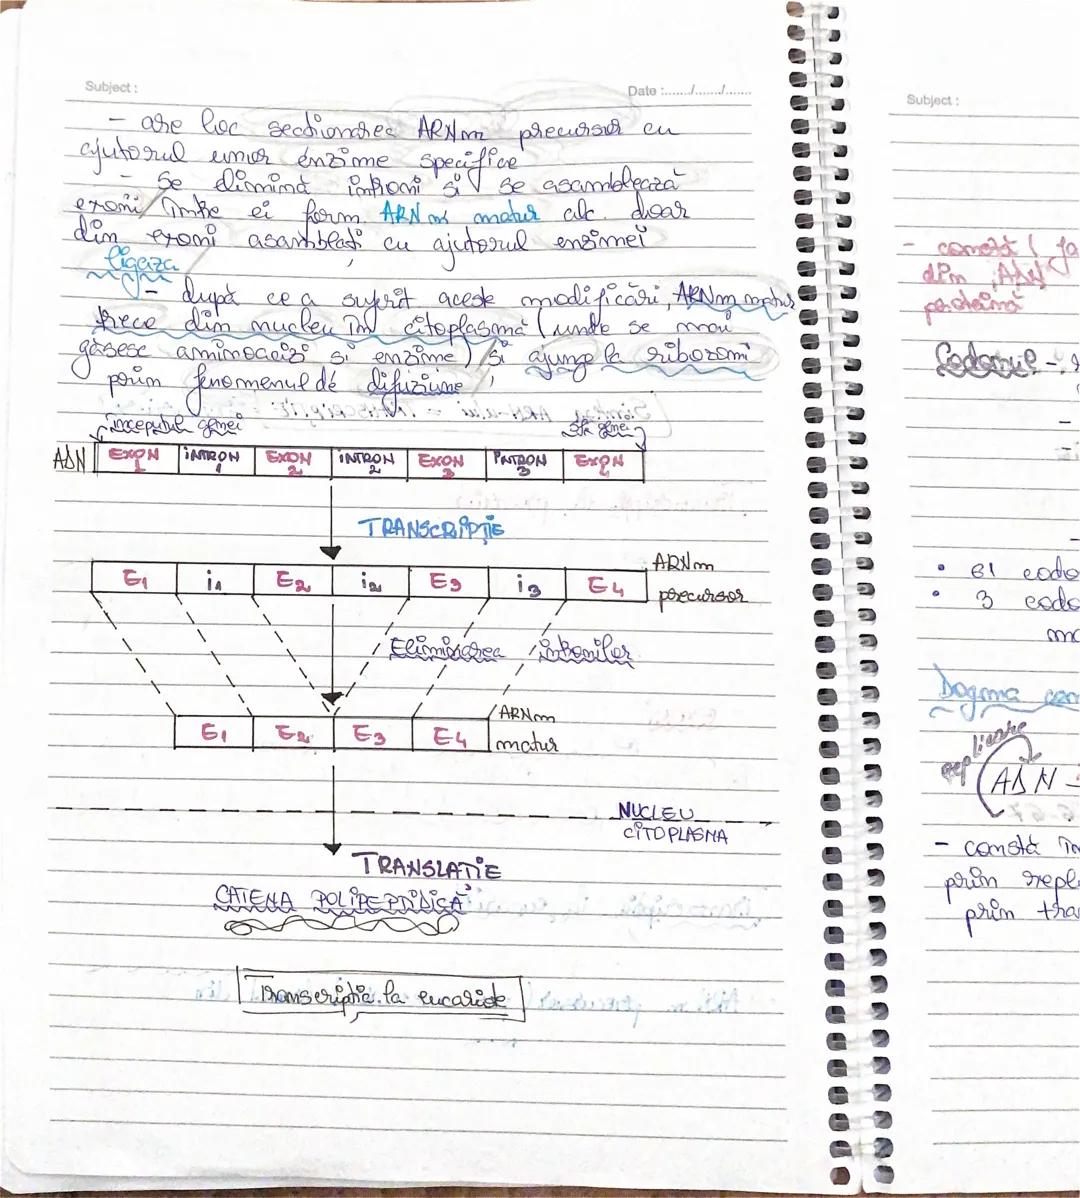 Subject :
Date :....../......./.......
- are loc secționarea ARNm precursor cu
ajutorul unor enzime specifice
- Se elimină introni și se asamblează
exoni între ei form. ARNm matur alc. doar
din exoni asamblați cu ajutorul enzimei
ligaza
- după ce a suferit aceste modificări, ARNm matur
trece din nucleu în citoplasmă (unde se mai
găsesc aminoacizi și enzime) și ajunge la ribozomi
prin fenomenul de difuziune
începutul genei
genei
ADN EXON 1 INTRON 1 EXON 2 INTRON 2 EXON 3 INTRON 3 EXON
TRANSCRIPȚIE
E1 i1 E2 i2 E3 i3 E4 ARNm
precursor
Eliminarea intronilor
E1 E2 E3 E4 ARNm
matur
NUCLEU
CITOPLASMA
TRANSLAȚIE
CATENA POLIPEPTIDICĂ
Transcripția la eucariote
Subject :
- constă
din ADN
proteină
Codonul -
-
-
• 61 codo
• 3 codo
Dogma cen
replicare
ADN
- constă în
prin repli
prin tra